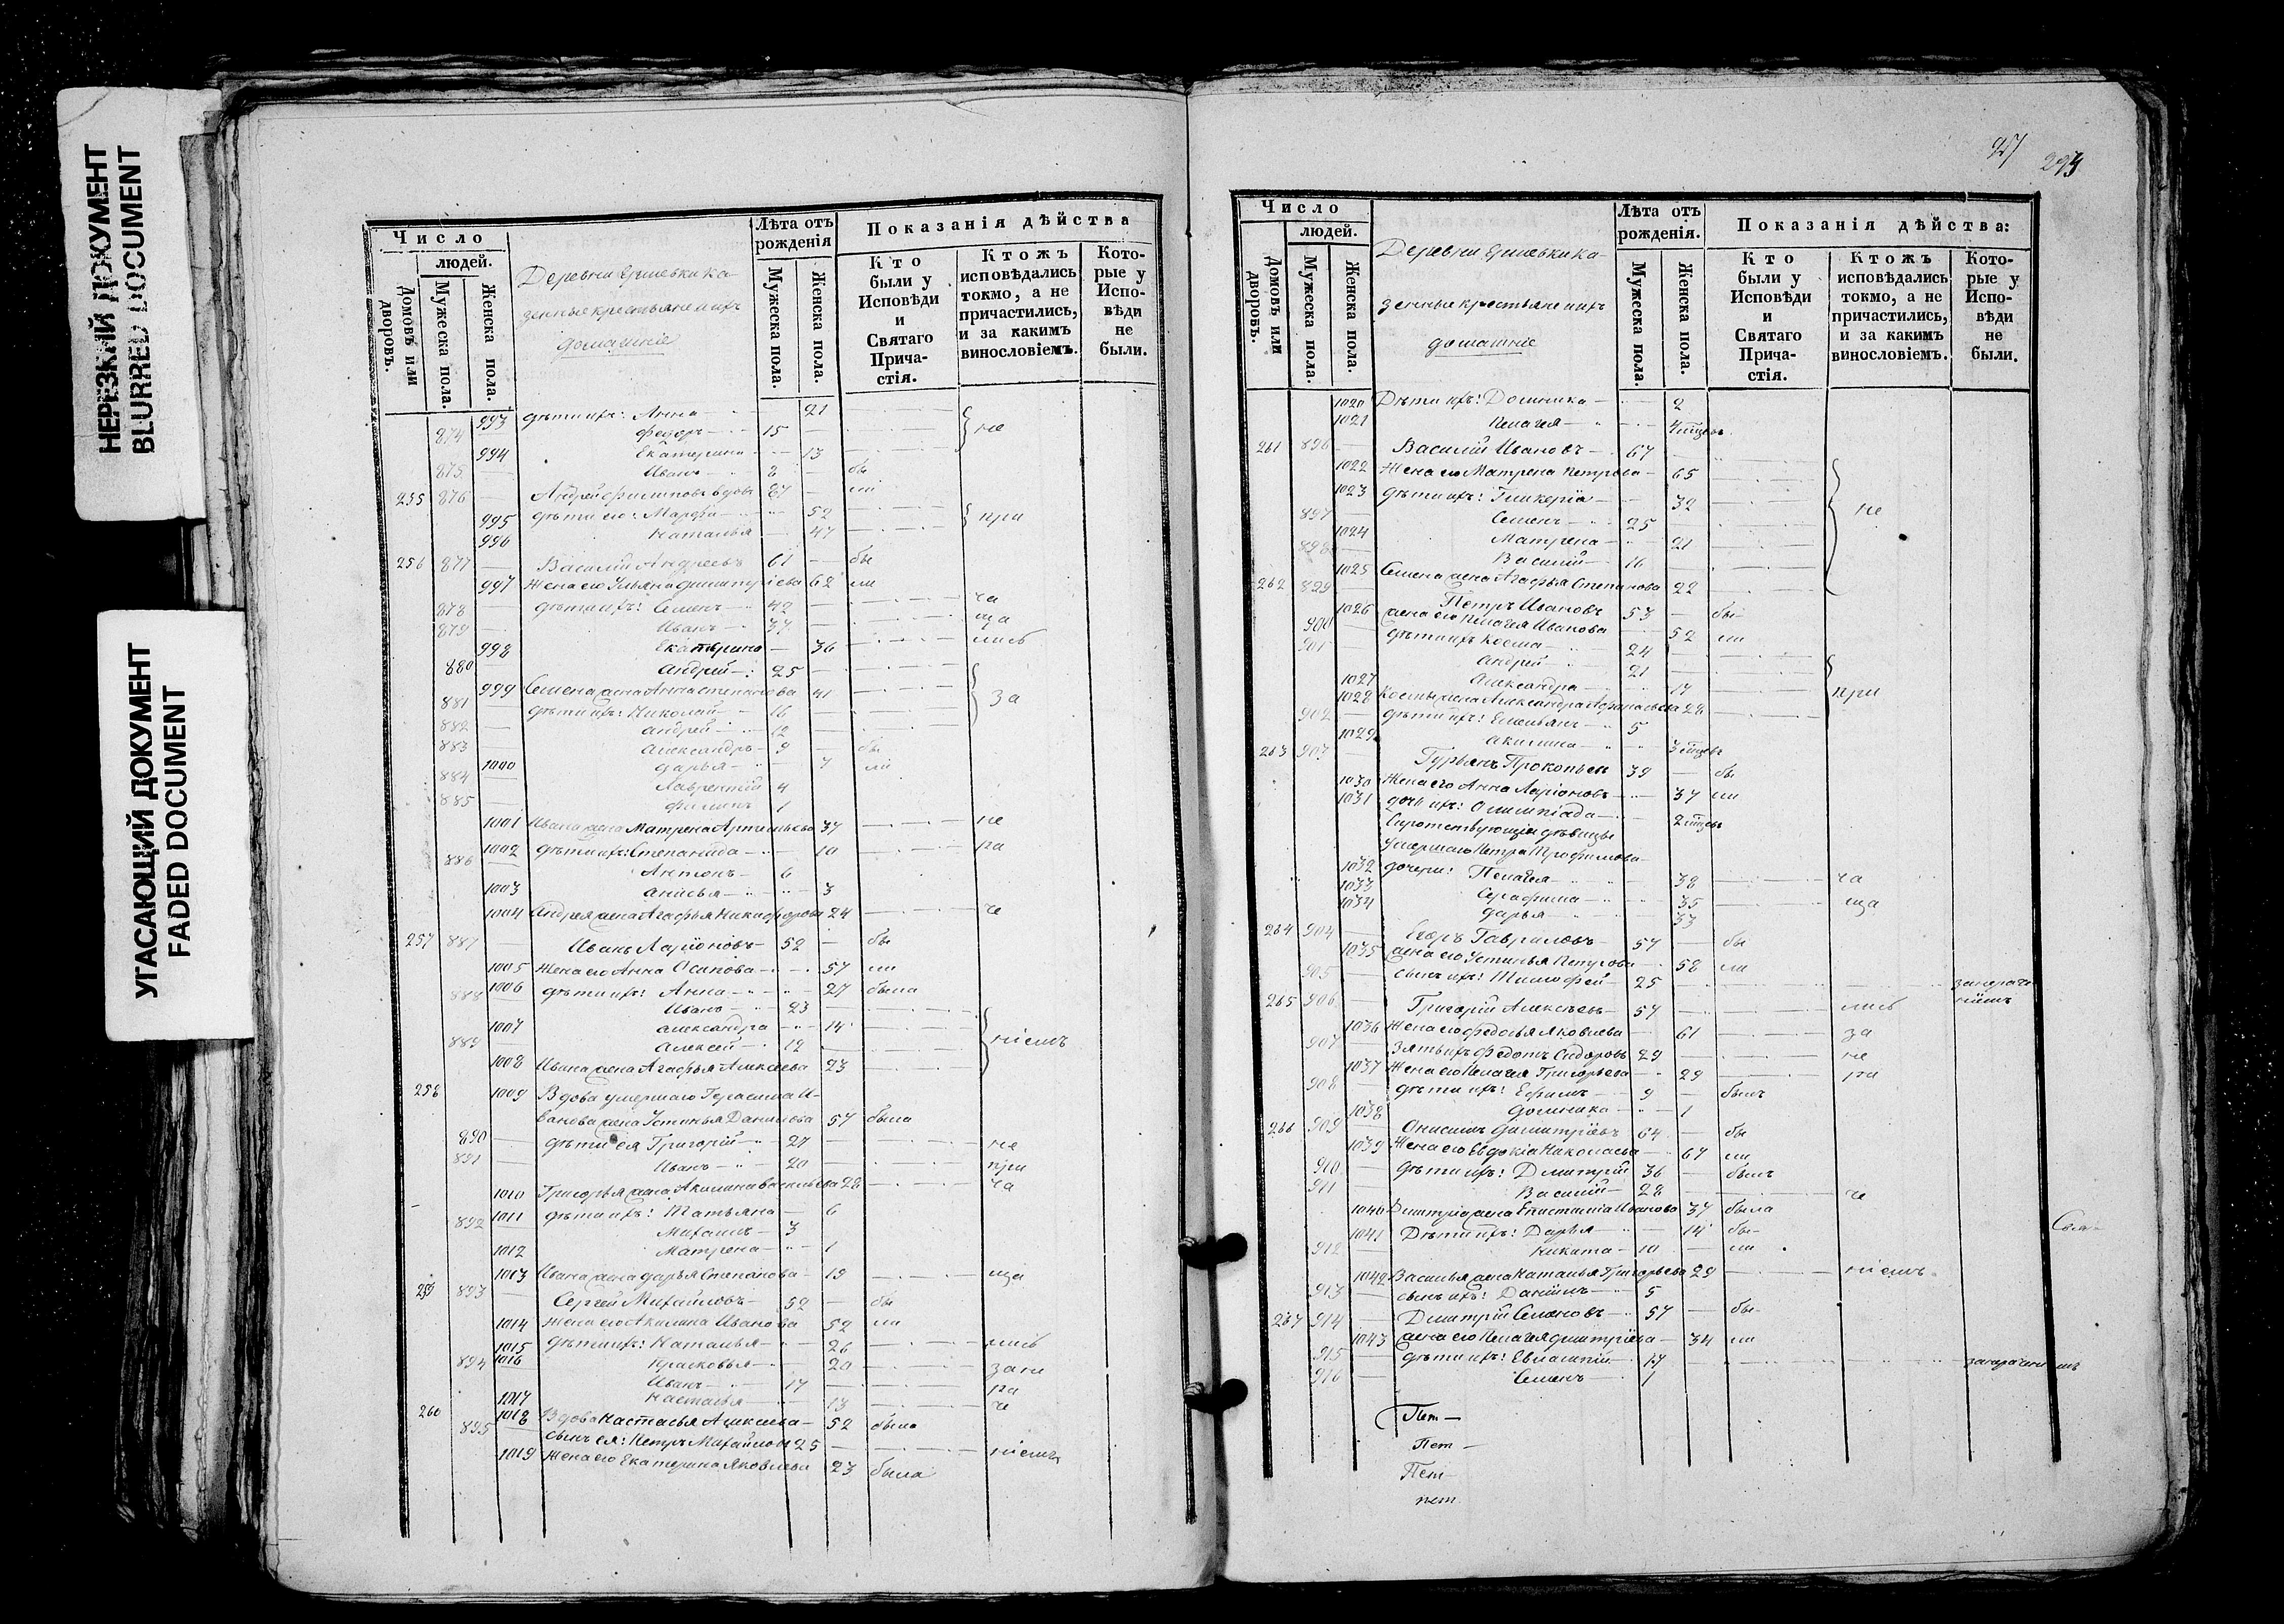 НЕРЕЗКИЙ ДОКУМЕНТ
BLURRED DOCUMENT
УГАСАЮЩИЙ ДОКУМЕНТ
FADED DOCUMENT
Число
людей.
Домовъ или дворовъ.
Мужеска пола.
Женска пола.
Деревни Ершевки ка-
зенные крестьяне и ихъ
домашніе
Лѣта отъ рожденія
Мужеска пола.
Женска пола.
Показанія дѣйства
Кто были у Исповѣди и Святаго Прича-стія.
Ктожъ исповѣдались токмо, а не причастились, и за какимъ винословіемъ.
Кото-рые у Испо-вѣди не были.
993 дѣти ихъ: Анна 21
874 Федоръ 15 не
994 Екатерина 13
875 Иванъ 8 бы
255 876 Андрей Филиповъ вдовъ 87 ли
995 дѣти его: Марфа 52 при
996 Наталья 47
256 877 Василий Андреевъ 61 бы
997 Жена его Ульяна Димитріева 62 ли
878 дѣти ихъ: Семенъ 42 ча
879 Иванъ 37 ща
998 Екатерина 36 лись
880 Андрей 25
999 Семена жена Анна Степанова 41 за
881 дѣти ихъ: Николай 16
882 Андрей 12
883 Александръ 9 бы
1000 Дарья 7 ли
884 Лаврентій 4
885 Филипъ 1
1001 Ивана жена Матрена Артемьева 37 не
1002 дѣти ихъ: Степанида 10 ра
886 Антонъ 6
1003 Анисья 3
1004 Андрея жена Агафья Никифорова 24 че
257 887 Иванъ Ларіоновъ 52 бы
1005 Жена его Анна Осипова 57 ли
1006 дѣти ихъ: Анна 27 была
888 Иванъ 23
1007 Александра 14 ніемъ
889 Алексей 12
1008 Ивана жена Агафья Алексеева 23
258 1009 Вдова умершаго Герасима И-
ванова жена Устинья Данилова 57 была
890 дѣти ея Григорій 27 не
891 Иванъ 20 при
1010 Григорья жена Акилина Васильева 28 ча
1011 дѣти ихъ: Татьяна 6
892 Михаилъ 3
1012 Матрена 1
1013 Ивана жена Дарья Степанова 19 ща
259 893 Сергей Михайловъ 52 бы
1014 Жена его Акилина Иванова 52 ли
1015 дѣти ихъ: Наталья 26 лись
1016 Прасковья 20 за не
894 Иванъ 17 ра
1017 Настасья 13 че
260 1018 Вдова Настасья Алексеева 52 была
895 сынъ ея: Петръ Михайловъ 25 ніемъ
1019 Жена его Екатерина Яковлева 23 была
27 293
Число
людей.
Домовъ или дворовъ.
Мужеска пола.
Женска пола.
Деревни Ершевки ка-
зенные крестьяне и ихъ
домашніе
Лѣта отъ рожденія.
Мужеска пола.
Женска пола.
Показанія дѣйства:
Кто были у Исповѣди и Святаго Прича-стія.
Ктожъ исповѣдались токмо, а не причастились, и за какимъ винословіемъ.
Кото-рые у Испо-вѣди не были.
1020 Дѣти ихъ: Домника 2
1021 Пелагея
261 896 Василій Ивановъ 67
1022 Жена его Матрена Петрова 65
1023 дѣти ихъ: Гликерія 32 не
897 Семенъ 25
1024 Матрена 21
898 Василій 16
1025 Семена жена Агафья Степанова 22
262 899 Петръ Ивановъ 53 бы
1026 жена его Пелагея Иванова 52 ли
900 дѣти ихъ Косма 24
901 Андрей 21
1027 Александра 17 при
1028 Космы жена Александра Афанасьева 28
902 дѣти ихъ: Емельянъ 5
1029 Акилина
263 903 Гурьянъ Прокопьевъ 39 бы
1030 Жена его Анна Ларіонова 37 ли
1031 дочь ихъ: Олимпіада
Сиротствующія дѣвицы
умершаго Петра Трофимова
1032 дочери: Пелагея 38 ча
1033 Серафима 35 ща
1034 Дарья 33
264 904 Егоръ Гавриловъ 57 бы
1035 жена его Устинья Петрова 58 ли
905 сынъ ихъ: Тимофей 25
265 906 Григорій Алексѣевъ 57 лись
1036 Жена его Федосья Яковлева 61 за
907 зять ихъ Федотъ Сидоровъ 29 не
1037 Жена его Пелагея Григорьева 29 ра
908 дѣти ихъ: Ефимъ 9 былъ
1038 Домника 1
266 909 Онисимъ Димитріевъ 64 бы
1039 Жена его Евдокія Николаева 67 ли
910 дѣти ихъ: Димитрій 36 былъ
911 Василій 28 че
1040 Димитрія жена Епистимія Иванова 37 была
1041 Дѣти ихъ: Дарья 14 бы
912 Никита 10 ли
1042 Василья жена Наталья Григорьева 29 ніемъ
913 сынъ ихъ: Даніилъ 5
267 914 Димитрій Семеновъ 57 бы
1043 жена его Пелагея Димитріева 34 ли
915 дѣти ихъ: Евлампій 17
916 Семенъ 1
Пет
Пет
Пет
пет